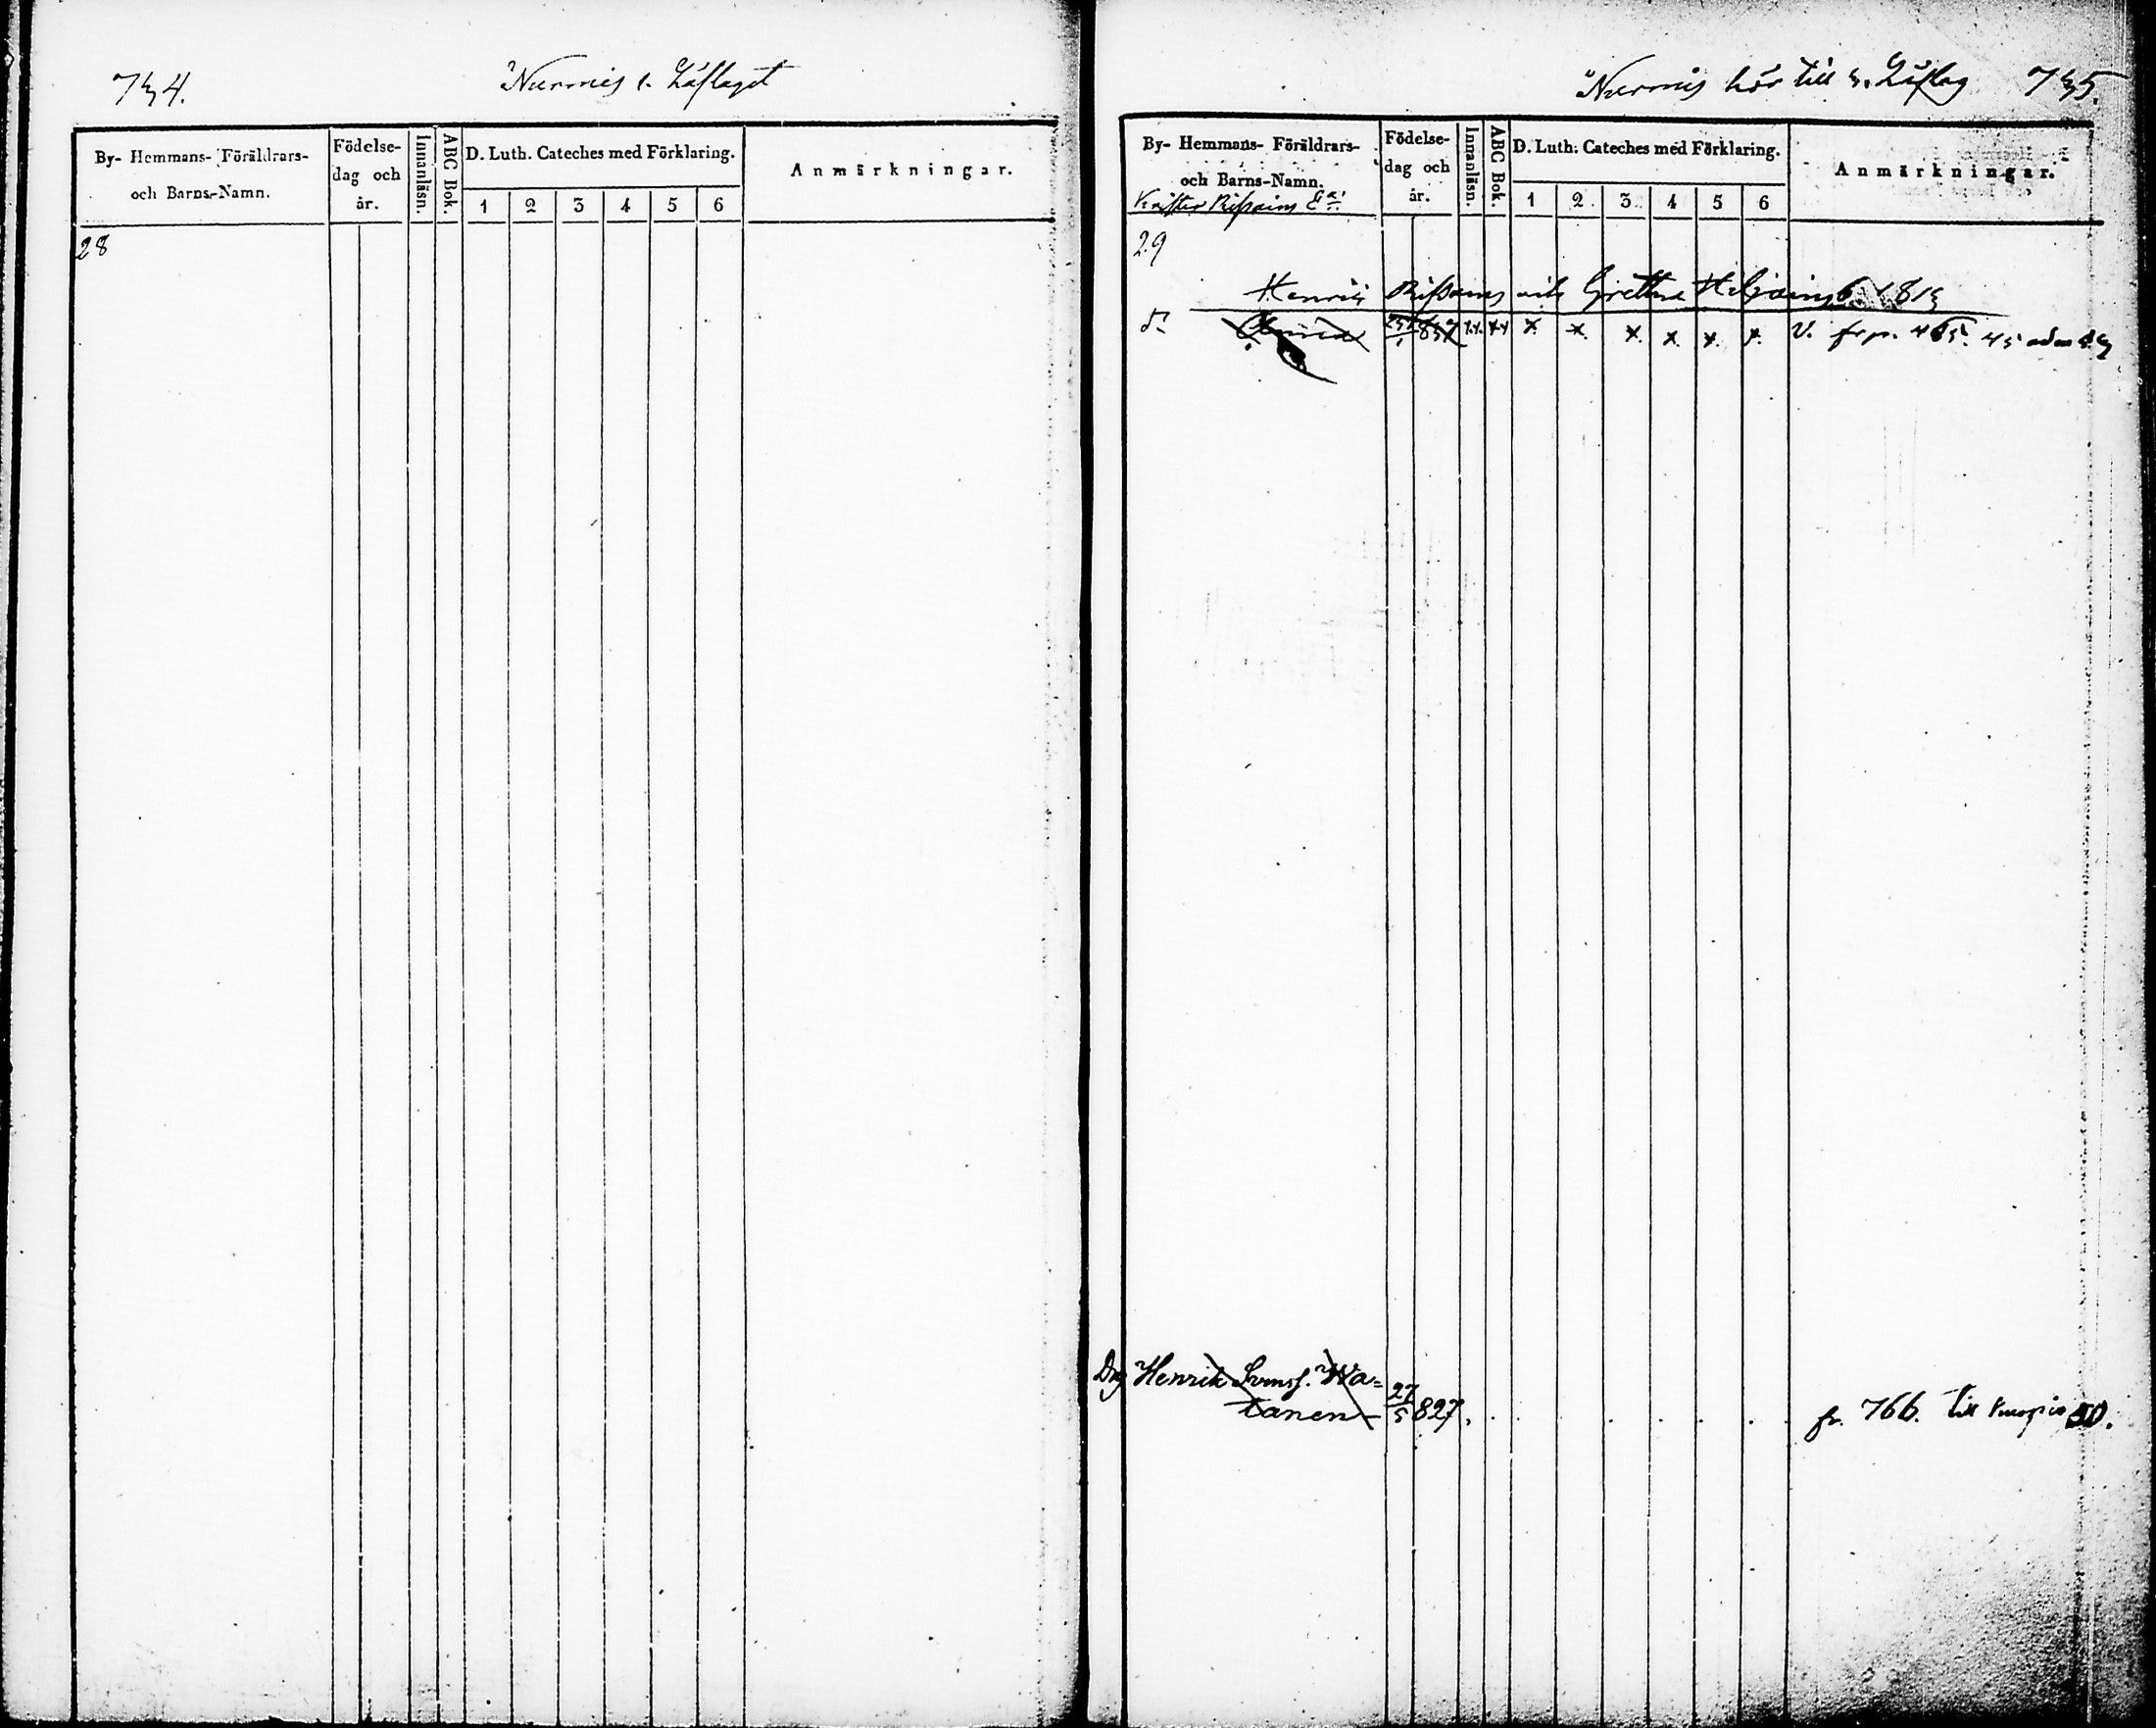 734.
Nurmis 1. Läslaget
By- Hemmans- Föräldrars-
och Barns-Namn.
Födelse-
dag och
år.
Innanläsn.
ABC Bok.
D. Luth. Cateches med Förklaring.
1 2 3 4 5 6
Anmärkningar.
28
Nurmis hör till 3. Läslag 735.
By- Hemmans- Föräldrars-
och Barns-Namn.
Födelse-
dag och
år.
Innanläsn.
ABC Bok.
D. Luth. Cateches med Förklaring.
1 2 3 4 5 6
Anmärkningar.
29
Henrik
x x x x x x V. fr p. 465. 45
Drg Henrik Svenss. Wa=
tanen 27/5 827. fr. 766. till Kuopio 50.